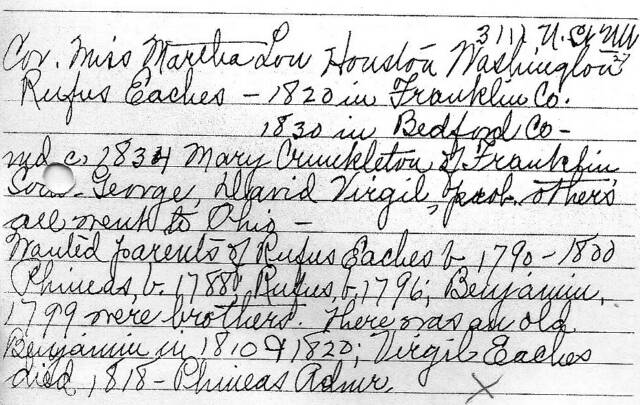 3111 N. St NW
Cor. Miss Martha Lou Houston Washington
Rufus Eaches - 1820 in Franklin Co.
1830 in Bedford Co -
md c. 1834 Mary Crunkleton of Franklin
Sons - George, David Virgil, prob. others
all went to Ohio -
Wanted parents of Rufus Eaches b 1790-1800
Phineas, b. 1788; Rufus, b. 1796; Benjamin,
1799 were brothers. There was an old
Benjamin in 1810 & 1820; Virgil Eaches
died 1818 - Phineas Admr.
X